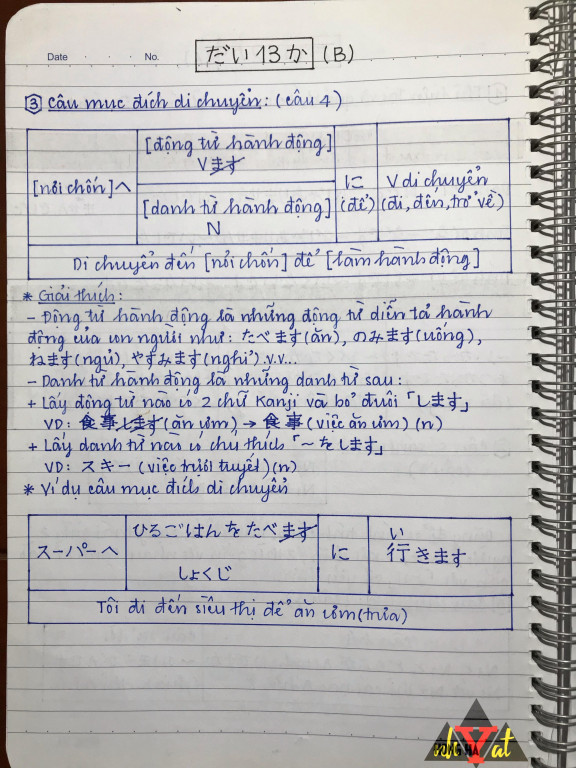 Date . . . No.
だい13か (B)
③ Câu mục đích di chuyển: (câu 4)
[nơi chốn]へ
[động từ hành động]
Vます
[danh từ hành động]
N
に
(để)
V di chuyển
(đi, đến, trở về)
Di chuyển đến [nơi chốn] để [làm hành động]
* Giải thích:
- Động từ hành động là những động từ diễn tả hành
động của con người như: たべます(ăn), のみます(uống),
ねます(ngủ), やすみます(nghỉ) v.v...
- Danh từ hành động là những danh từ sau:
+ Lấy động từ nào có 2 chữ Kanji và bỏ đuôi「します」
VD: 食事します(ăn cơm) → 食事(việc ăn cơm) (n)
+ Lấy danh từ nào có chú thích「~をします」
VD: スキー (việc trượt tuyết)(n)
* Ví dụ câu mục đích di chuyển
スーパーへ
ひるごはんをたべます
しょくじ
に
い
行きます
Tôi đi đến siêu thị để ăn cơm(trưa)